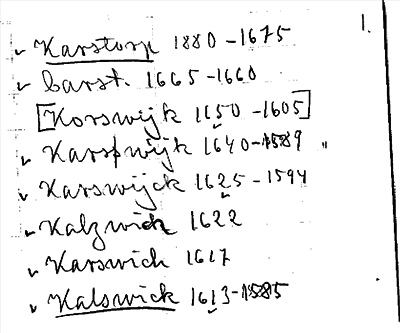 1.
Karstorp 1880-1675
Carst. 1665-1660
[Korswijk 1650-1605]
Karspwijk 1640-1589 "
Karswijck 1625-1594
Kalzwick 1622
Karswich 1617
Kalswick 1613-1585